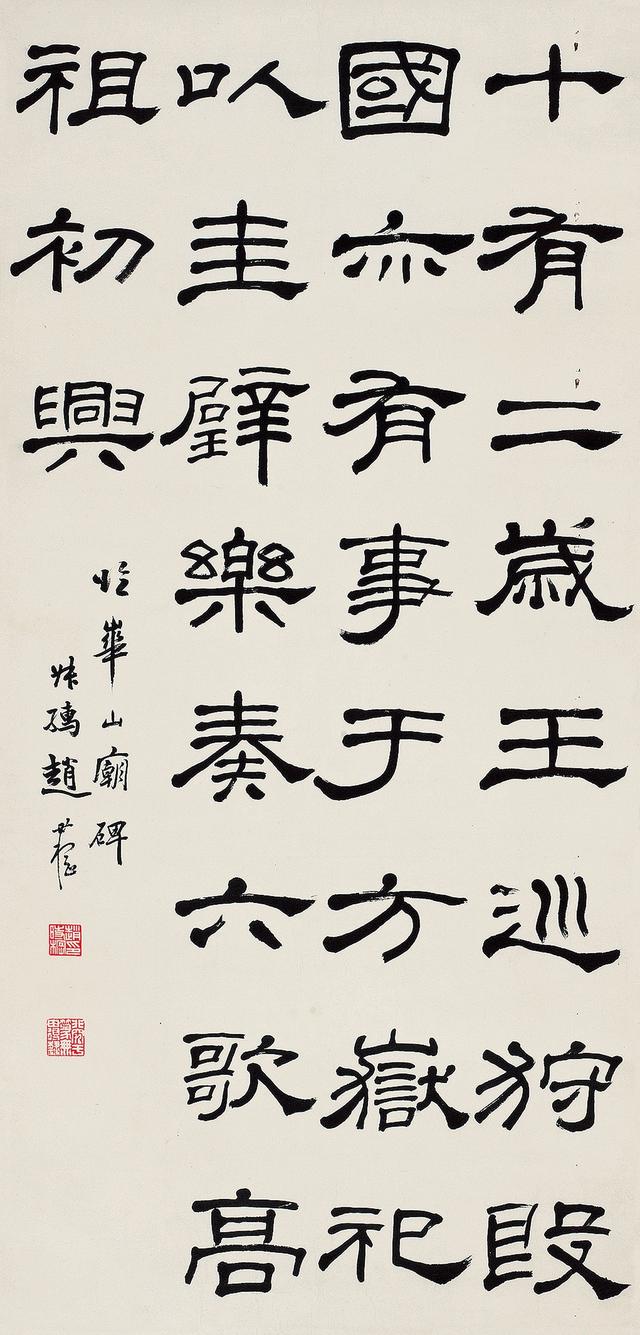 十有二歲王巡狩殷
國亦有事于方嶽祀
以圭璧樂奏六歌高
祖初興
臨華山廟碑
叔孺趙時棡
趙印時棡